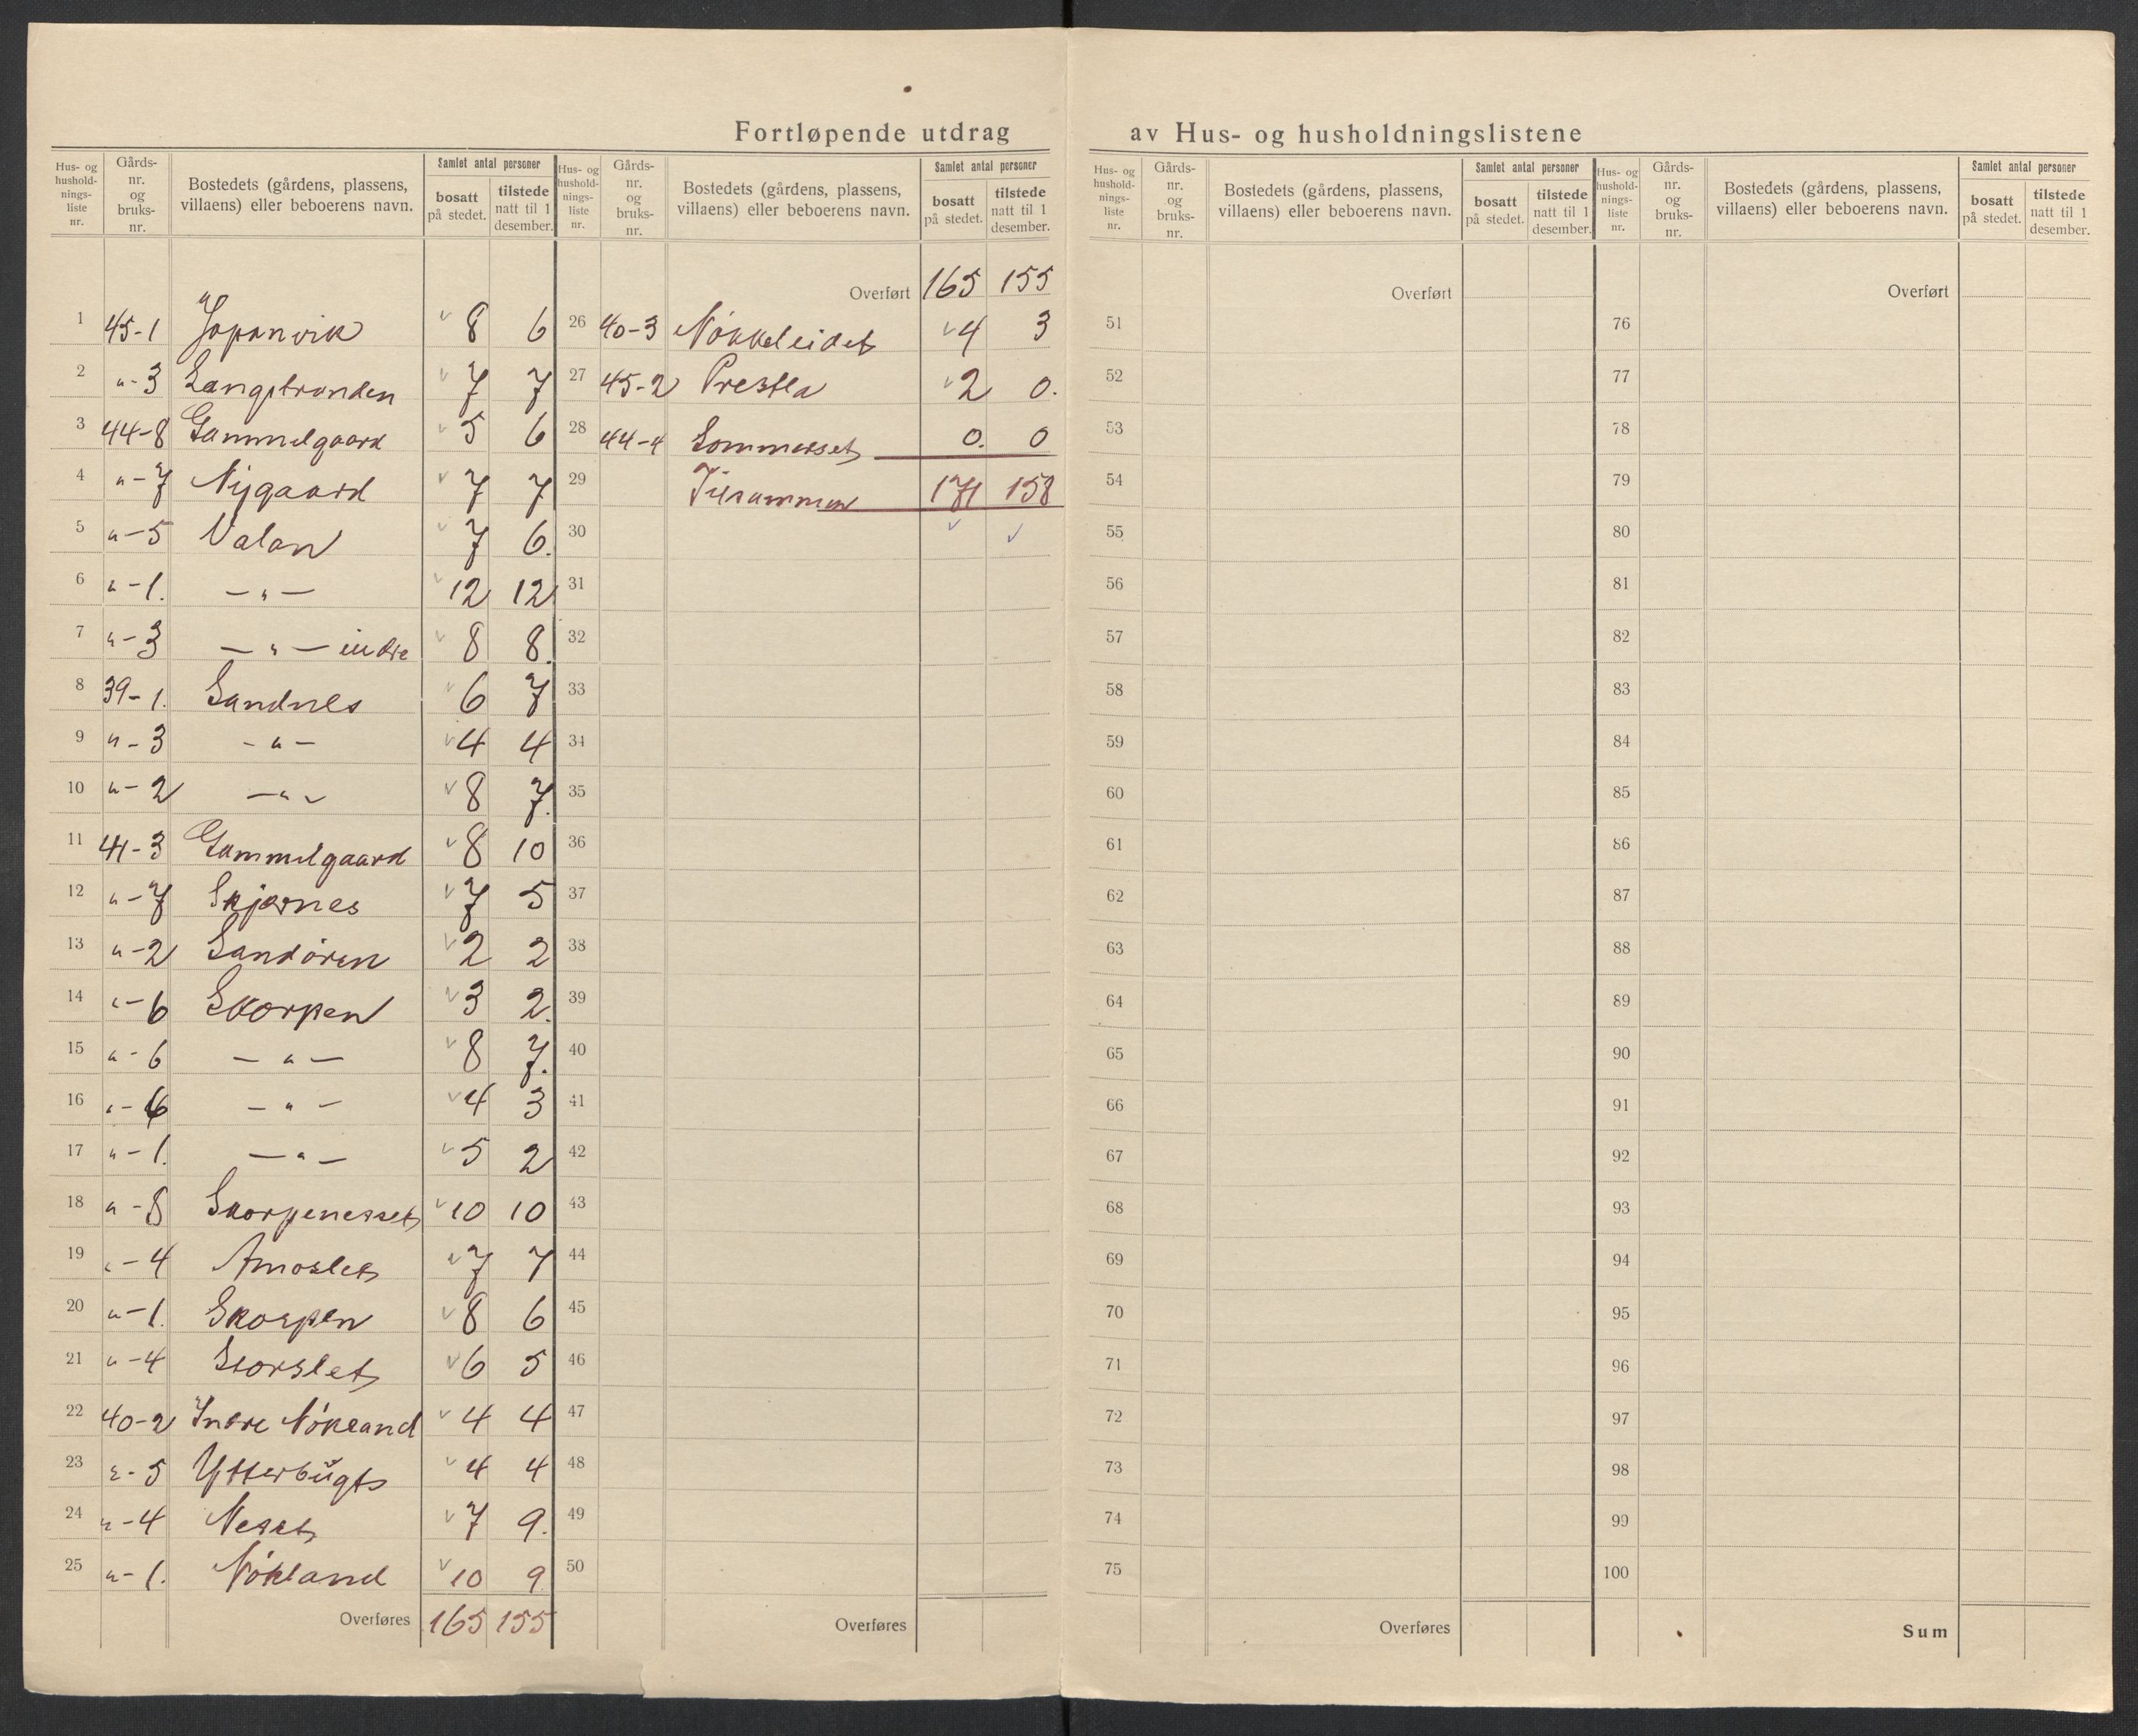 Fortløpende utdrag av Hus- og husholdningslistene
Hus- og husholdnings-liste nr. | Gårds-nr. og bruks-nr. | Bostedets (gårdens, plassens, villaens) eller beboerens navn. | Samlet antal personer | bosatt på stedet. | tilstede natt til 1 desember.
Hus- og husholdnings-liste nr. | Gårds-nr. og bruks-nr. | Bostedets (gårdens, plassens, villaens) eller beboerens navn. | Samlet antal personer | bosatt på stedet. | tilstede natt til 1 desember.
1 45-1 Jopanvik 8 6
2 "-3 Langstranden 7 7
3 44-8 Gammelgaard 5 6
4 "-7 Nygaard 7 7
5 "-5 Valan 7 6.
6 "-1. -"- 12 12
7 "-3 -"- indre 8 8.
8 39-1. Sandnes 6 7
9 "-3 -"- 4 4
10 "-2 -"- 8 7.
11 41-3 Gammelgaard 8 10
12 "-7 Skjernes 7 5
13 "-2 Sandören 2 2
14 "-6 Skorpen 3 2.
15 "-6 -"- 8 7.
16 "-6 -"- 4 3
17 "-1. -"- 5 2
18 "-8 Skorpenesset 10 10
19 "-4 Amoslet 7 7
20 "-1. Skorpen 8 6
21 "-4 Storslet 6 5
22 40-2 Indre Nökland 4 4
23 "-5 Ytterbugt 4 4
24 "-4 Neset 7 9.
25 "-1. Nökland 10 9
Overføres 165 155
Overført 165 155
26 40-3 Nökkeleidet 4 3
27 45-2 Prestla 2 0.
28 44-4 Sommerset 0. 0
29 Tilsammen 171 158
30
31
32
33
34
35
36
37
38
39
40
41
42
43
44
45
46
47
48
49
50
Overføres
Hus- og husholdnings-liste nr. | Gårds-nr. og bruks-nr. | Bostedets (gårdens, plassens, villaens) eller beboerens navn. | Samlet antal personer | bosatt på stedet. | tilstede natt til 1 desember.
Overført
51
52
53
54
55
56
57
58
59
60
61
62
63
64
65
66
67
68
69
70
71
72
73
74
75
Overføres
Hus- og husholdnings-liste nr. | Gårds-nr. og bruks-nr. | Bostedets (gårdens, plassens, villaens) eller beboerens navn. | Samlet antal personer | bosatt på stedet. | tilstede natt til 1 desember.
Overført
76
77
78
79
80
81
82
83
84
85
86
87
88
89
90
91
92
93
94
95
96
97
98
99
100
Sum